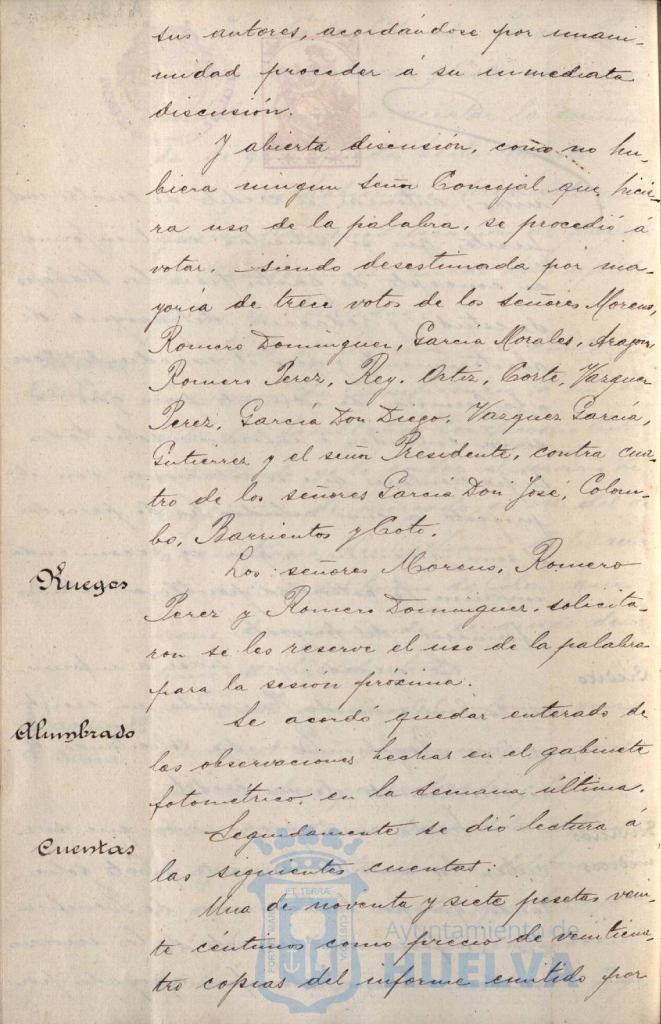 sus autores, acordándose por unani-
midad proceder á su inmediata
discusión.
Y abierta discusión, como no hu-
biera ningun señor Concejal que hicie-
ra uso de la palabra, se procedió á
votar, siendo desestimada por ma-
yoría de trece votos de los señores Moreno,
Romero Dominguez, García Morales, Aragon,
Romero Perez, Rey, Ortiz, Corte, Vazquez
Perez, García Don Diego, Vazquez García,
Gutierrez y el señor Presidente, contra cua-
tro de los señores García Don José, Colom-
bo, Barrientos y Coto.
Ruegos
Los señores Moreno, Romero
Perez y Romero Dominguez, solicita-
ron se les reserve el uso de la palabra
para la sesión próxima.
Alumbrado
Se acordó quedar enterado de
las observaciones hechas en el gabinete
fotométrico, en la semana última.
Cuentas
Seguidamente se dió lectura á
las siguientes cuentas:
Una de noventa y siete pesetas vein-
te céntimos como precio de veinticua-
tro copias del informe emitido por
Ayuntamiento de
HUELVA